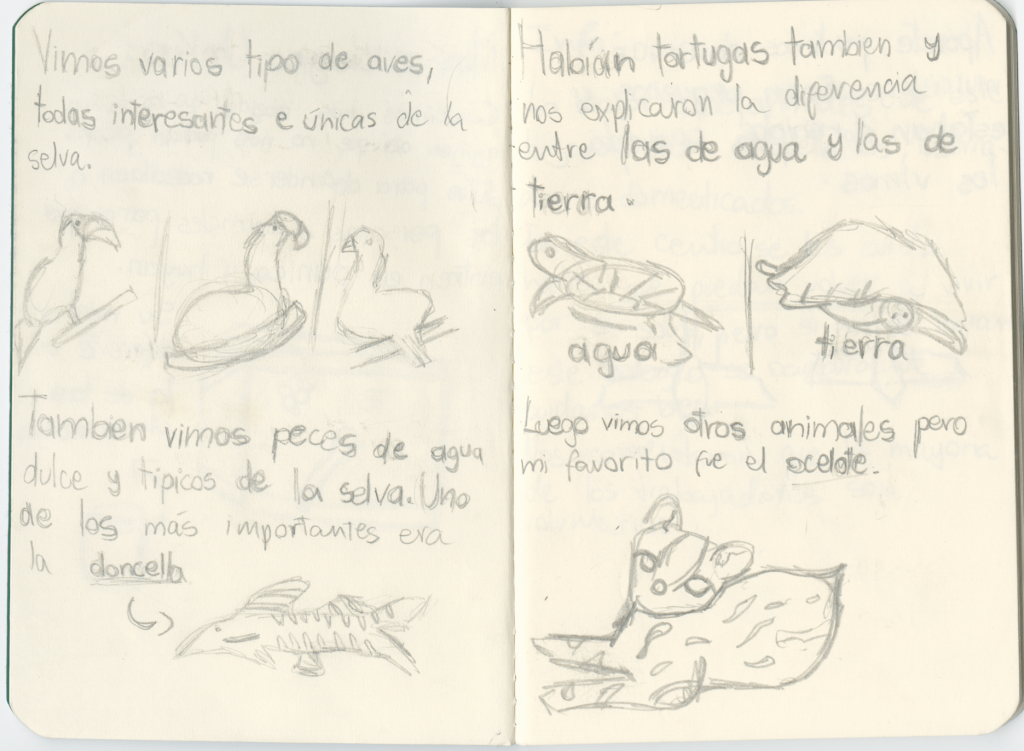 Vimos varios tipo de aves,
todas interesantes e únicas de la
selva.
Tambien vimos peces de agua
dulce y tipicos de la selva. Uno
de los más importantes era
la doncella
Habian tortugas tambien y
nos explicaron la diferencia
entre las de agua y las de
tierra.
agua
tierra
Luego vimos otros animales pero
mi favorito fue el ocelote.